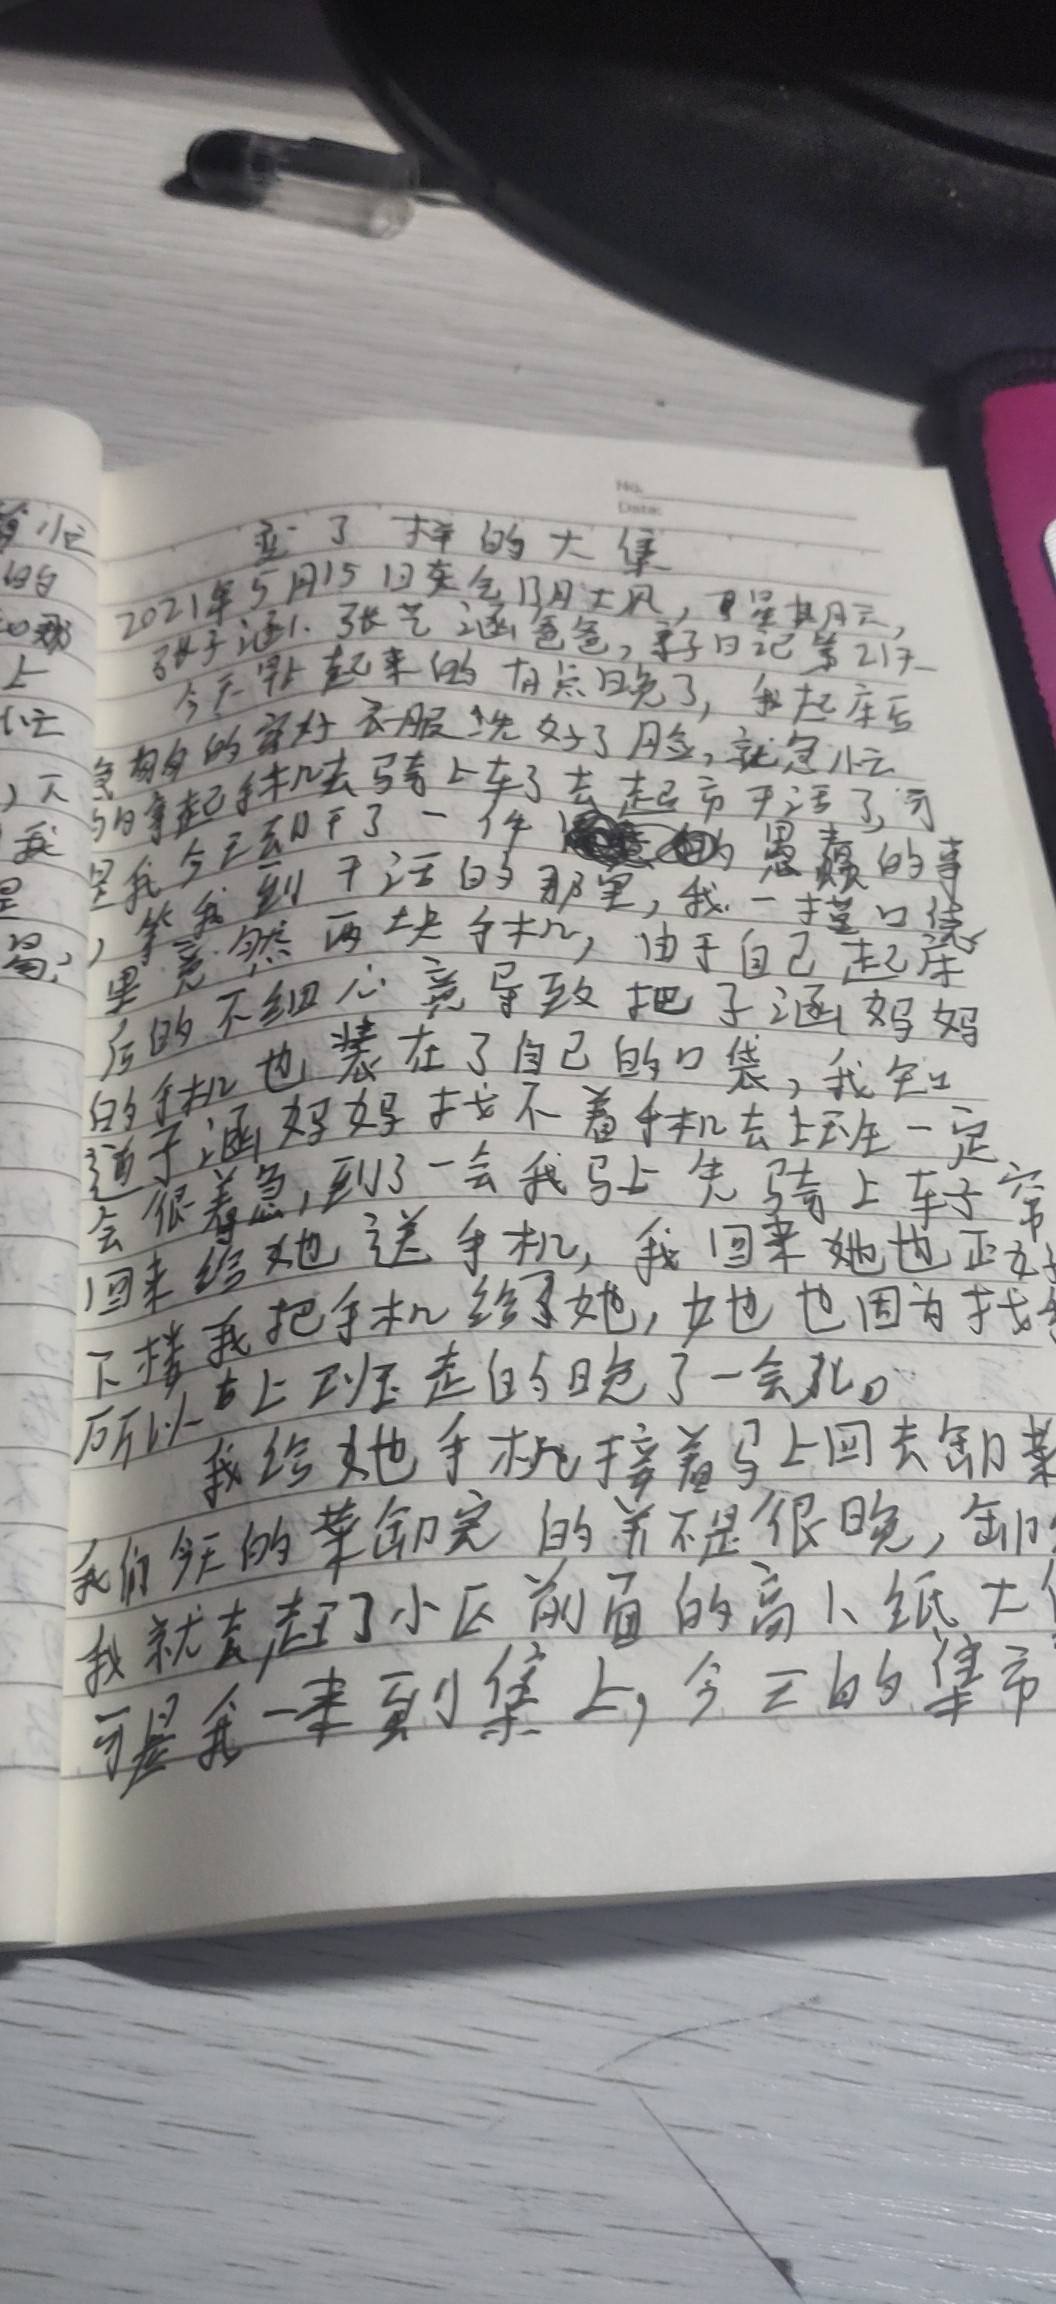 No.
Date:
变了样的大集
2021年5月15日天气阴大风,星期六,
张子涵、张艺涵爸爸,亲子日记第21天
今天早上起来的有点晚了,我起床后
急匆匆的穿好衣服洗好了脸,就急忙
的拿起手机去骑上车了去超市干活了,可
是我今天却干了一件愚蠢的事
,等我到干活的那里,我一摸口袋
里竟然两块手机,由于自己起床
后的不细心竟导致把子涵妈妈
的手机也装在了自己的口袋,我知
道子涵妈妈找不着手机去上班一定
会很着急,到了一会我马上先骑上车子
回来给她送手机,我回来她也正好
下楼我把手机给了她,她也因为找
所以上班走的晚了一会儿。
我给她手机接着马上回去卸菜
我们今天的菜卸完的并不是很晚,卸
我就去赶了小区前面的高小纸大
可是我一来到集上,今天的集市